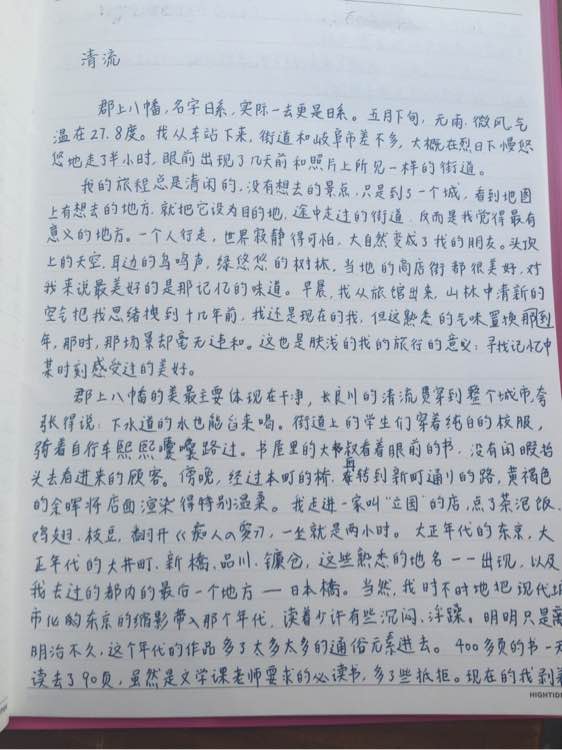 清流
郡上八幡，名字日系，实际一去更是日系。五月下旬，无雨，微风，气
温在27.8度。我从车站下来，街道和岐阜市差不多，大概在烈日下慢悠
悠地走了半小时，眼前出现了几天前和照片上所见一样的街道。
我的旅程总是清闲的，没有想去的景点，只是到了一个城，看到地图
上有想去的地方，就把它设为目的地，途中走过的街道，反而是我觉得最有
意义的地方。一个人行走，世界寂静得可怕，大自然变成了我的朋友。头顶
上的天空，耳边的鸟鸣声，绿悠悠的树林，当地的商店街都很美好，对
我来说最美好的是那记忆的味道。早晨，我从旅馆出来，山林中清新的
空气把我思绪拽到十几年前，我还是现在的我，但这熟悉的气味置换到那
年，那时，那场景却毫无违和。这也是肤浅的我的旅行的意义：寻找记忆中
某时刻感受过的美好。
郡上八幡的美最主要体现在干净，长良川的清流贯穿到整个城市，夸
张得说：下水道的水也能舀来喝。街道上的学生们穿着纯白的校服，
骑着自行车熙熙囔囔路过。书屋里的大叔看着眼前的书，没有闲暇抬
头去看进来的顾客。傍晚，经过本町的桥，再转到新町通り的路，黄褐色
的余晖将店面渲染得特别温柔。我走进一家叫“立囲”的店，点了茶泡饭、
鸡翅、枝豆，翻开《痴人の愛》，一坐就是两小时。大正年代的东京，大
正年代的大井町、新橋、品川、镰仓，这些熟悉的地名一一出现，以及
我去过的都内的最后一个地方——日本橋。当然，我时不时地把现代城
市化的东京的缩影带入那个年代，读着少许有些沉闷、浮躁。明明只是离
明治不久，这个年代的作品多了太多太多的通俗元素进去。400多页的书一天
读去了90页，虽然是文学课老师要求的必读书，多了些抵拒。现在的我到着
HIGHTIDE